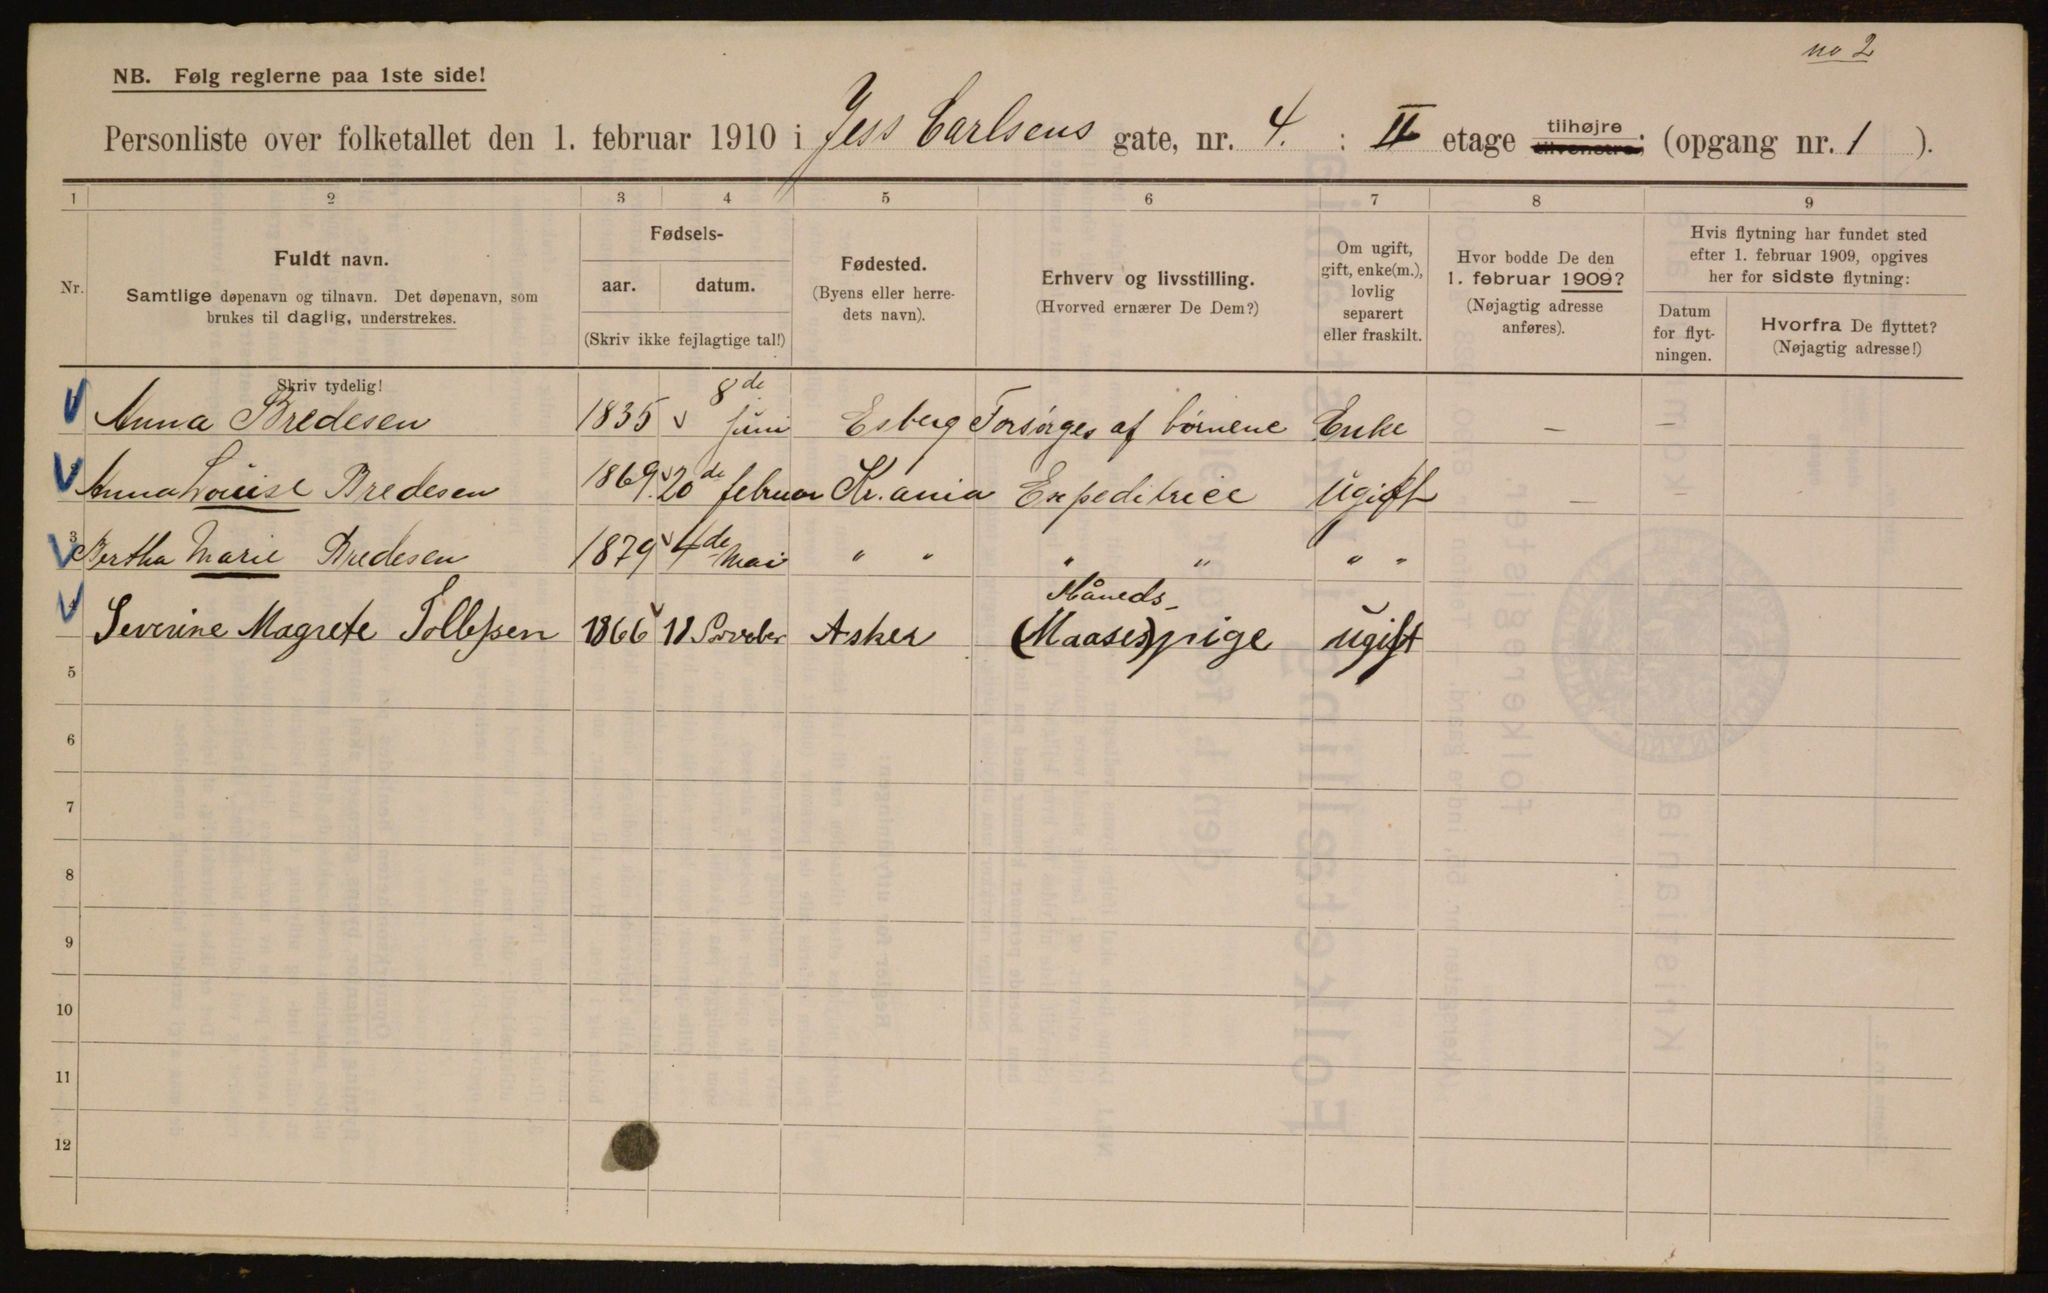 no 2
NB. Følg reglerne paa 1ste side!
Personliste over folketallet den 1. februar 1910 i Jess Carlsens gate, nr. 4. : II etage tilhøjre tilvenstre; (opgang nr. 1 ).
1 2 3 4 5 6 7 8 9
Nr.
Fuldt navn.
Samtlige døpenavn og tilnavn. Det døpenavn, som
brukes til daglig, understrekes.
Skriv tydelig!
Fødsels-
aar. datum.
(Skriv ikke fejlagtige tal!)
Fødested.
(Byens eller herre-
dets navn).
Erhverv og livsstilling.
(Hvorved ernærer De Dem?)
Om ugift,
gift, enke(m.),
lovlig
separert
eller fraskilt.
Hvor bodde De den
1. februar 1909?
(Nøjagtig adresse
anføres).
Hvis flytning har fundet sted
efter 1. februar 1909, opgives
her for sidste flytning:
Datum
for flyt-
ningen.
Hvorfra De flyttet?
(Nøjagtig adresse!)
Anna Bredesen 1835 8de Juni Esberg Forsørges af børnene Enke — —
Anna Louise Bredesen 1869. 20de februar Kr.ania Expeditrice Ugift —
3 Bertha Marie Bredesen 1879 4de Mai " " " " " "
Severine Magrete Tollefsen 1866 18 Asker (Maases) Måneds- pige ugift
5
6
7
8
9
10
11
12